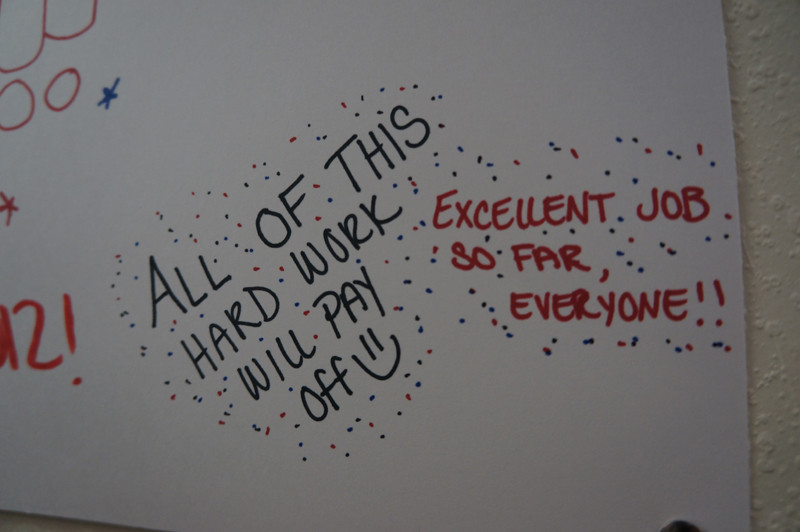 ALL OF THIS
HARD WORK
WILL PAY
Off
EXCELLENT JOB
SO FAR,
EVERYONE!!
12!